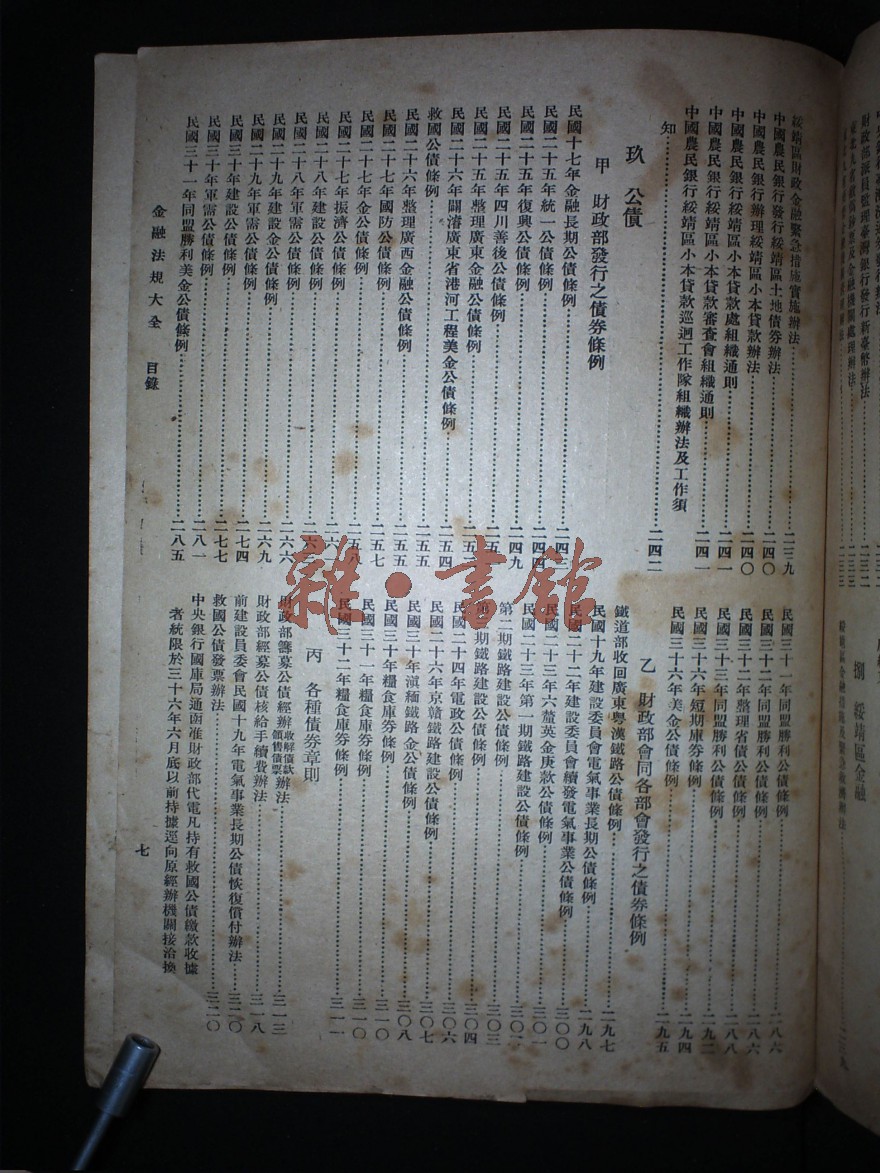 綏靖區財政金融緊急措施實施辦法……二三九
中國農民銀行發行綏靖區土地債券辦法……二四〇
中國農民銀行辦理綏靖區小本貸款辦法……二四〇
中國農民銀行綏靖區小本貸款處組織通則……二四一
中國農民銀行綏靖區小本貸款審查會組織通則……二四一
中國農民銀行綏靖區小本貸款巡迴工作隊組織辦法及工作須
知……二四二
玖 公債
甲 財政部發行之債券條例
民國十七年金融長期公債條例……二四三
民國二十五年統一公債條例……二四四
民國二十五年復興公債條例……二四九
民國二十五年四川善後公債條例
民國二十五年整理廣東金融公債條例
民國二十六年開濬廣東省港河工程美金公債條例……二五四
救國公債條例……二五五
民國二十六年整理廣西金融公債條例……二五五
民國二十七年國防公債條例……二五七
民國二十七年金公債條例……二五八
民國二十七年振濟公債條例
民國二十八年建設公債條例
民國二十八年軍需公債條例……二六六
民國二十九年建設金公債條例……二六九
民國二十九年軍需公債條例……二七四
民國三十年建設公債條例……二七七
民國三十年軍需公債條例……二八一
民國三十一年同盟勝利美金公債條例……二八五
民國三十一年同盟勝利公債條例……二八六
民國三十二年同盟勝利公債條例……二八六
民國三十二年整理省債公債條例……二八八
民國三十三年同盟勝利公債條例……二九二
民國三十六年短期庫券條例……二九四
民國三十六年美金公債條例……二九五
乙 財政部會同各部會發行之債券條例
鐵道部收回廣東粵漢鐵路公債條例……二九七
民國十九年建設委員會電氣事業長期公債條例……二九八
民國二十二年建設委員會續發電氣事業公債條例……三〇〇
民國二十三年六釐英金庚款公債條例……三〇一
民國二十三年第一期鐵路建設公債條例……三〇二
第二期鐵路建設公債條例……三〇三
第三期鐵路建設公債條例……三〇四
民國二十四年電政公債條例……三〇六
民國二十六年京贛鐵路建設公債條例……三〇七
民國三十年滇緬鐵路金公債條例……三〇八
民國三十年糧食庫券條例……三一〇
民國三十一年糧食庫券條例……三一〇
民國三十二年糧食庫券條例……三一一
丙 各種債券章則
財政部籌募公債經辦收解債款領售債票辦法……三一三
財政部經募公債核給手續費辦法……三一八
前建設委員會民國十九年電氣事業長期公債恢復償付辦法……三二〇
救國公債發票辦法……三二〇
中央銀行國庫局通函准財政部代電凡持有救國公債繳款收據
者統限於三十六年六月底以前持據逕向原經辦機關接洽換
金融法規大全 目錄
七
捌 綏靖區金融
雜·書館